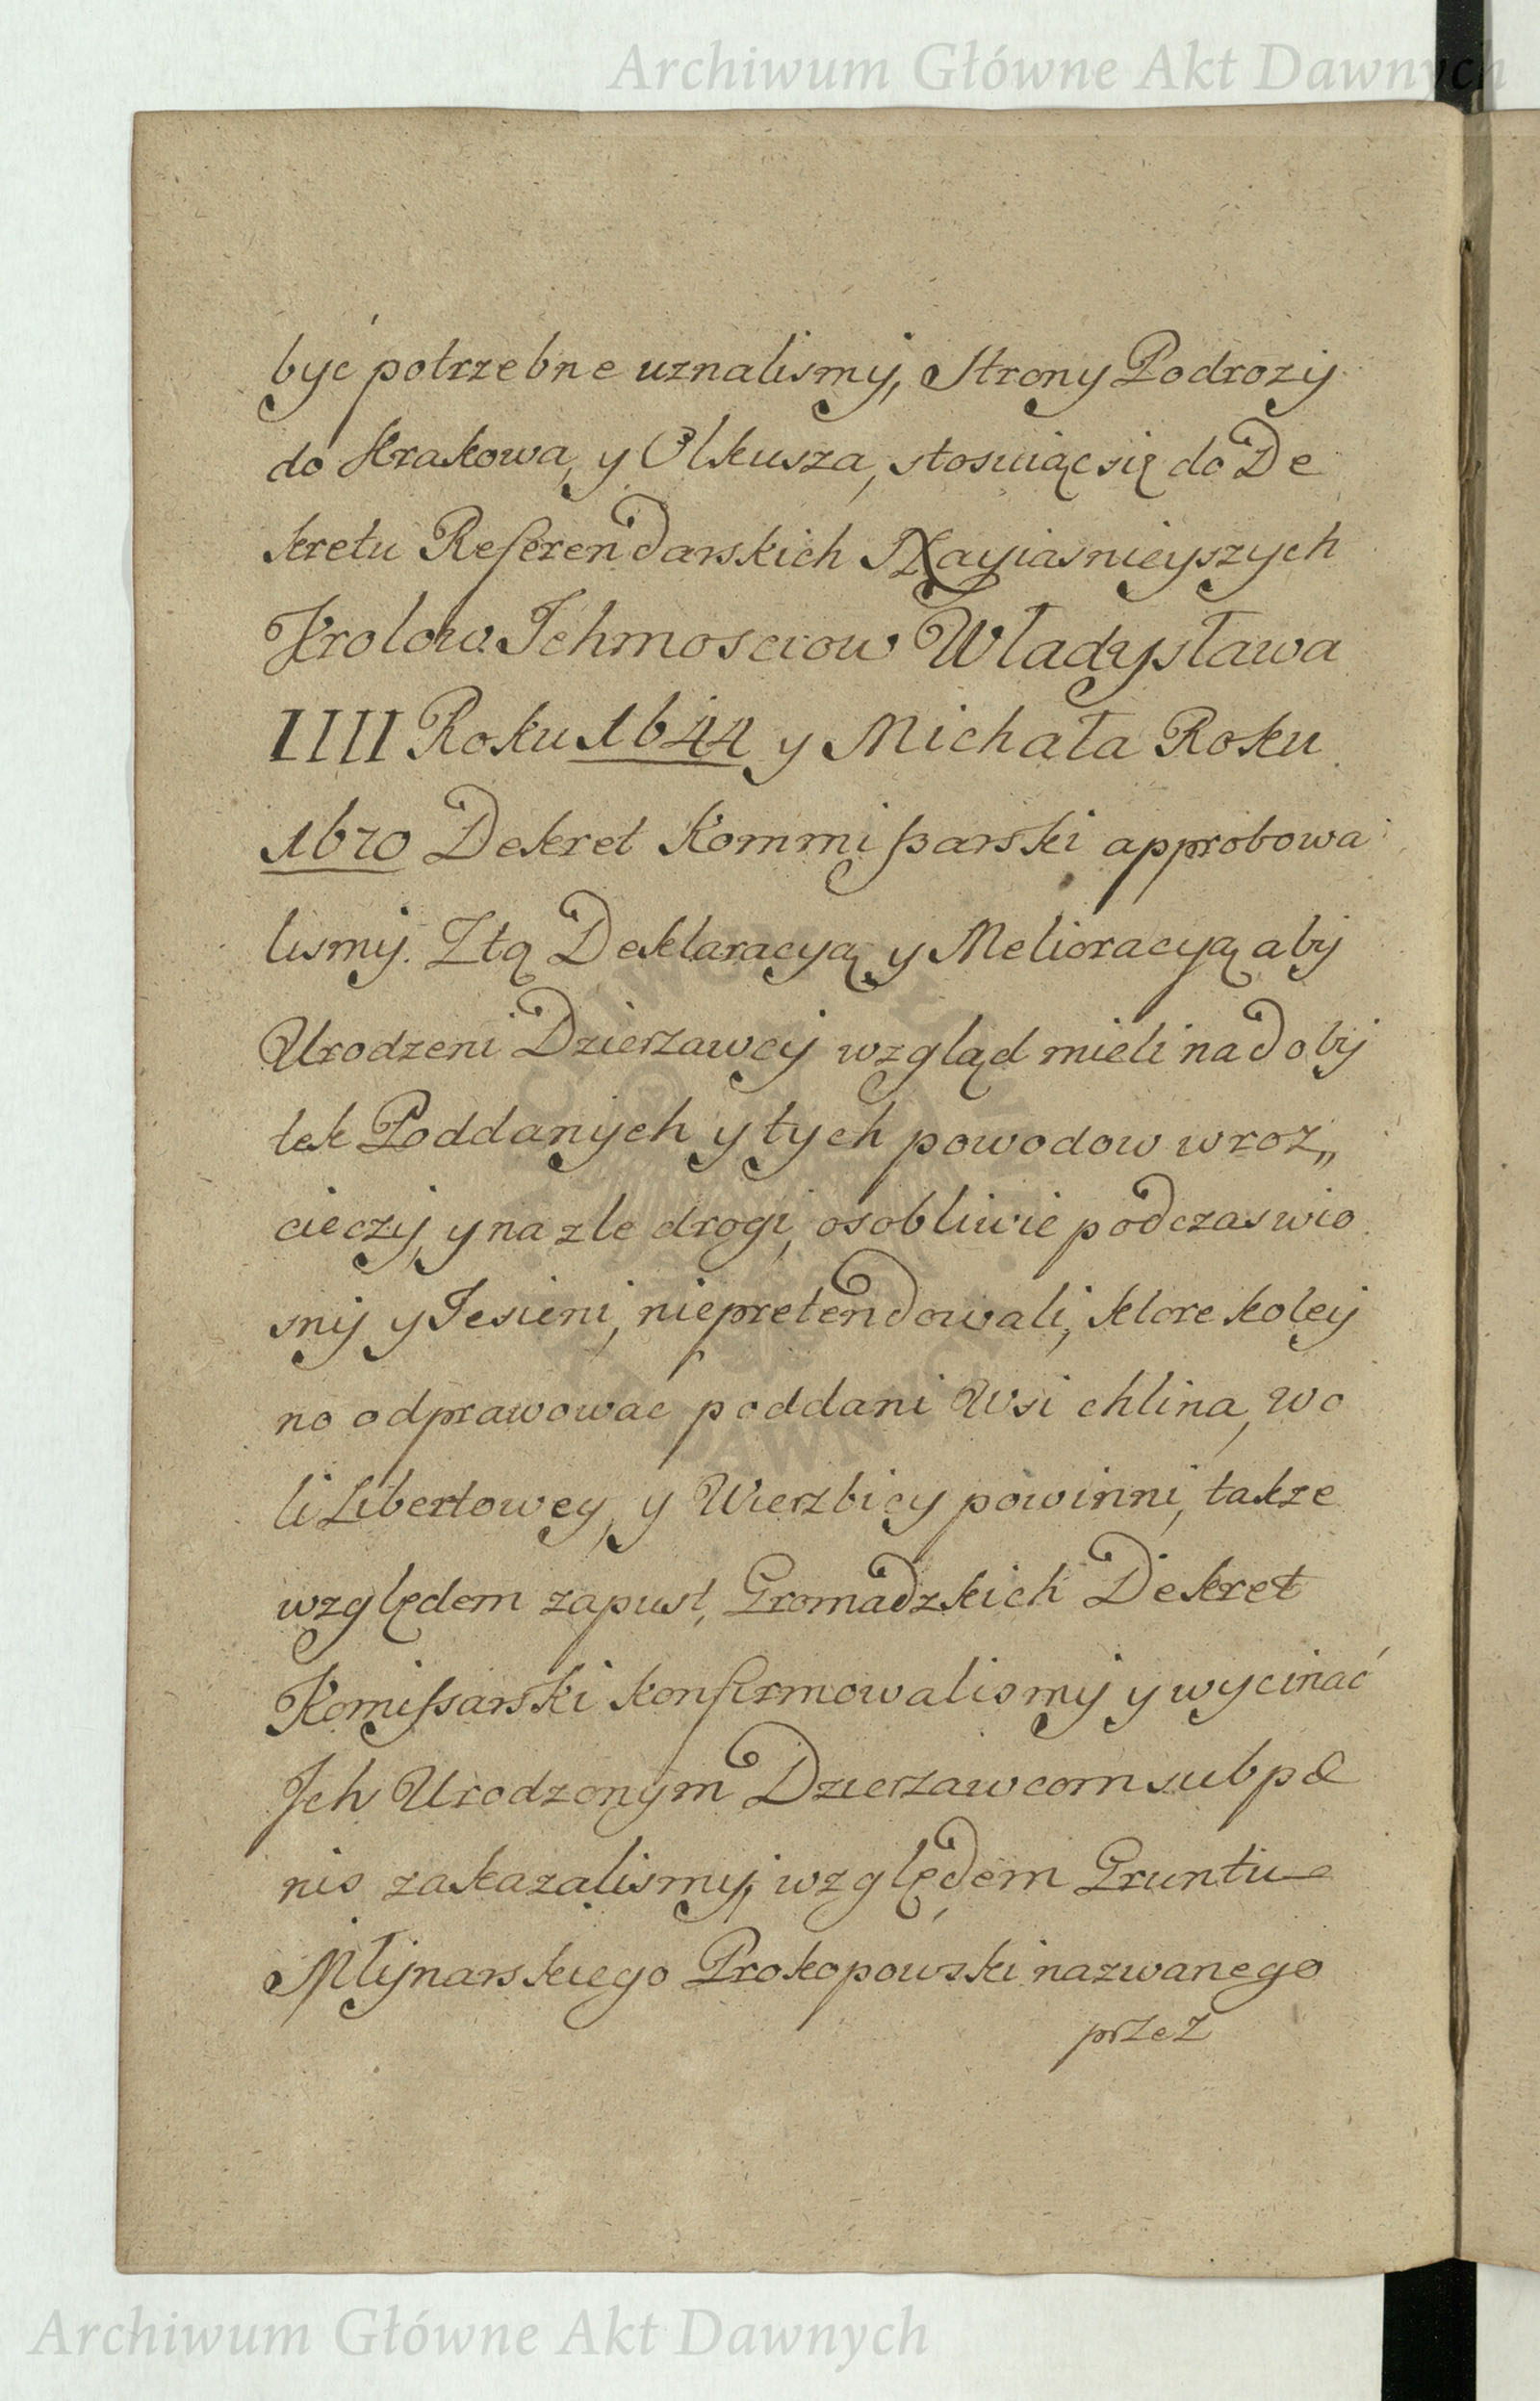 Archiwum Główne Akt Dawnych
być potrzebne uznalismy, Strony Podrozy
do Krakowa, y Olkusza, stosuiąc się do De
kretu Referendarskich Nayiasnieyszych
Krolow Ichmosciow Władysława
IIII Roku 1644 y Michała Roku
1670 Dekret Kommißarski approbowa
lismy. Ztą Deklaracyą y Melioracyą aby
Urodzeni Dzierzawcy wzgląd mieli na doby
tek Poddanych y tych powodow wroz„
cieczy, y na zle drogi, osobliwie podczas wio
sny y Iesieni, niepretendowali, ktore koley
no odprawowac poddani Wsi chlina, wo
li Libertowey, y Wierzbicy powinni, takze
względem zapust, Gromadzkich Dekret
Komißarski konfirmowalismy y wycinać
Ich Urodzonym Dzierzawcom sub pæ
nis zakazalismy, względem Gruntu
Młynarskiego Prokopowski nazwanego
przez
Archiwum Główne Akt Dawnych